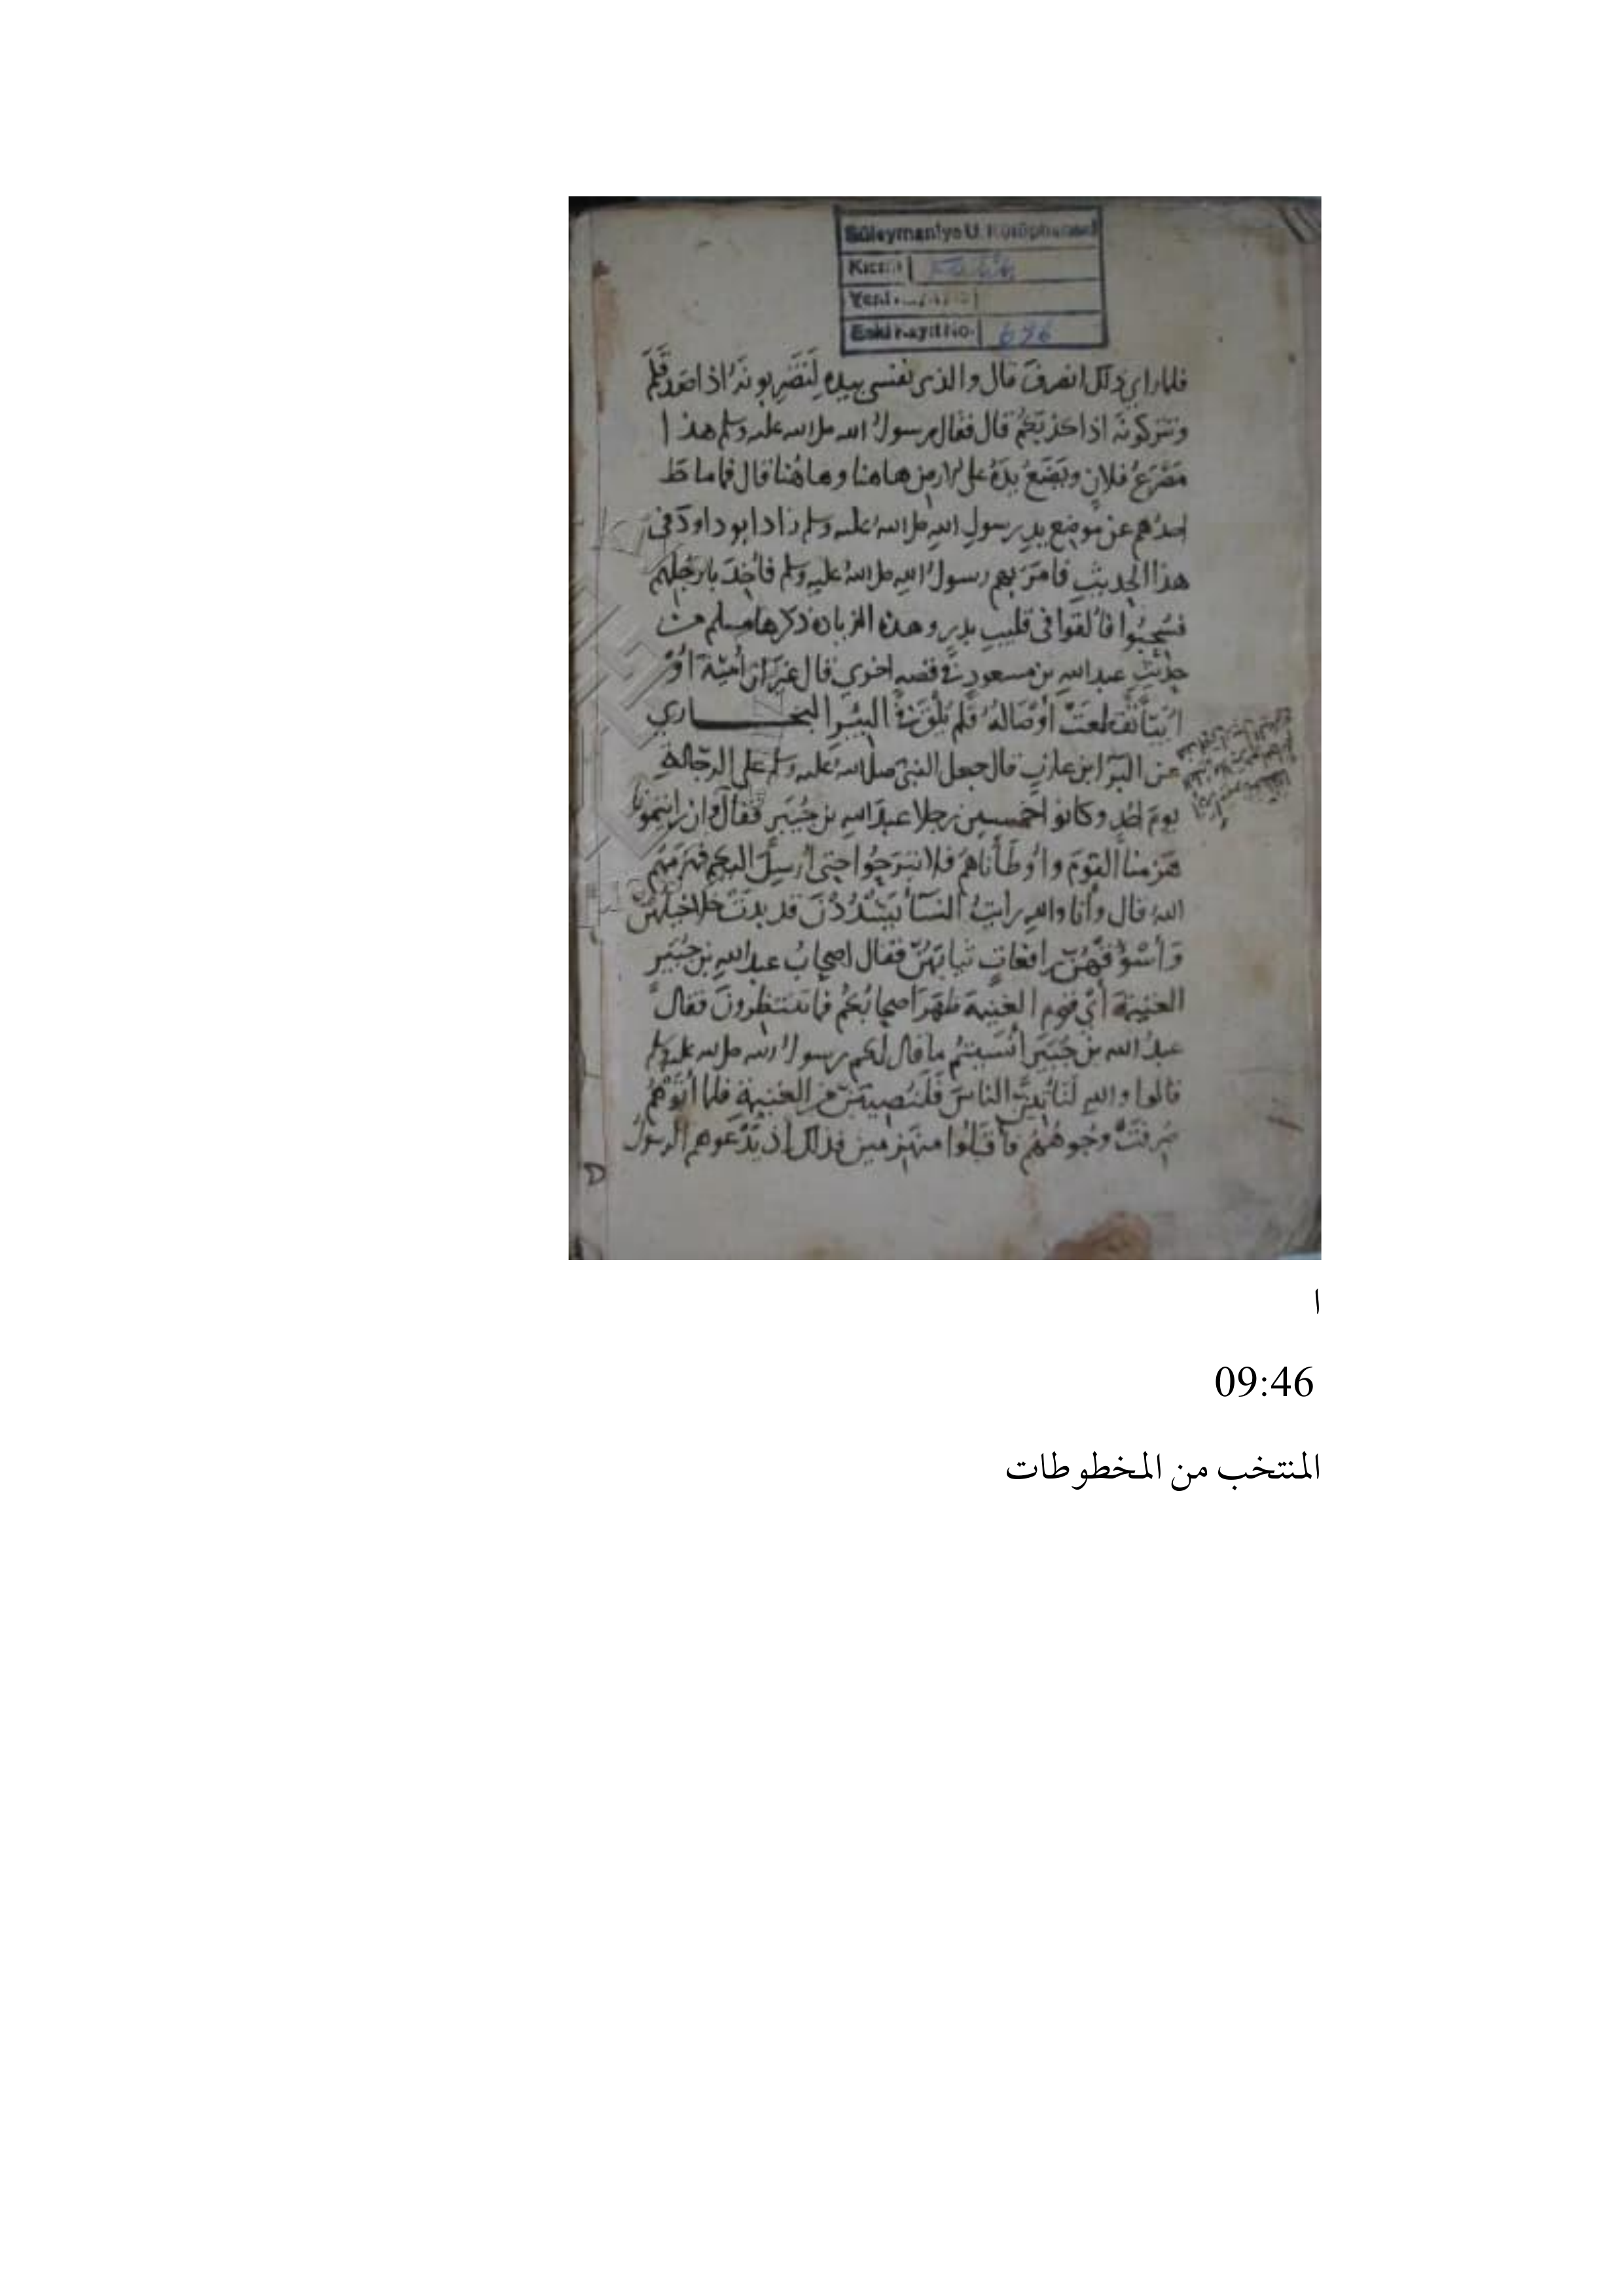 Süleymaniye U. Kütüphanesi
Kısmı
Yeni
Eski Kayıt No. 646
فلما راي ذلك انصرف قال والذي نفسي بيده لتضربونه اذا صدقكم
وتتركونه اذا كذبكم قال فقال رسول الله صلى الله عليه وسلم هذا
مصرع فلان ويضع يده على الارض هاهنا وهاهنا قال فما ماط
احدهم عن موضع يد رسول الله صلى الله عليه وسلم زاد ابو داود في
هذا الحديث فامر بهم رسول الله صلى الله عليه وسلم فأخذ بارجلهم
فسحبوا فألقوا في قليب بدر وهذه الزياده ذكرها مسلم من
حديث عبد الله بن مسعود في قصه اخري قال غير ان أمية أو
أبيا تقطعت أوصاله فلم يلق في البئر البخاري
عن البرا ابن عازب قال جعل النبي صلى الله عليه وسلم على الرجالة
يوم احد وكانوا خمسين رجلا عبد الله بن جبير فقال وان رايتمونا
هزمنا القوم واوطأناهم فلا تبرحوا حتى ارسل اليكم فهزمهم
الله قال وأنا والله رايت النسآ يشددن قد بدت خلاخيلهن
وأسوقهن رافعات ثيابهن فقال اصحاب عبد الله بن جبير
الغنيمة أي قوم الغنيمة ظهر اصحابكم فما تنتظرون فقال
عبد الله بن جبير أنسيتم ما قال لكم رسول الله صلى الله عليه وسلم
قالوا والله لنأتين الناس فلنصيبن من الغنيمة فلما أتوهم
صرفت وجوههم فأقبلوا منهزمين فذلك إذ يدعوهم الرسول
ا
09:46
المنتخب من المخطوطات